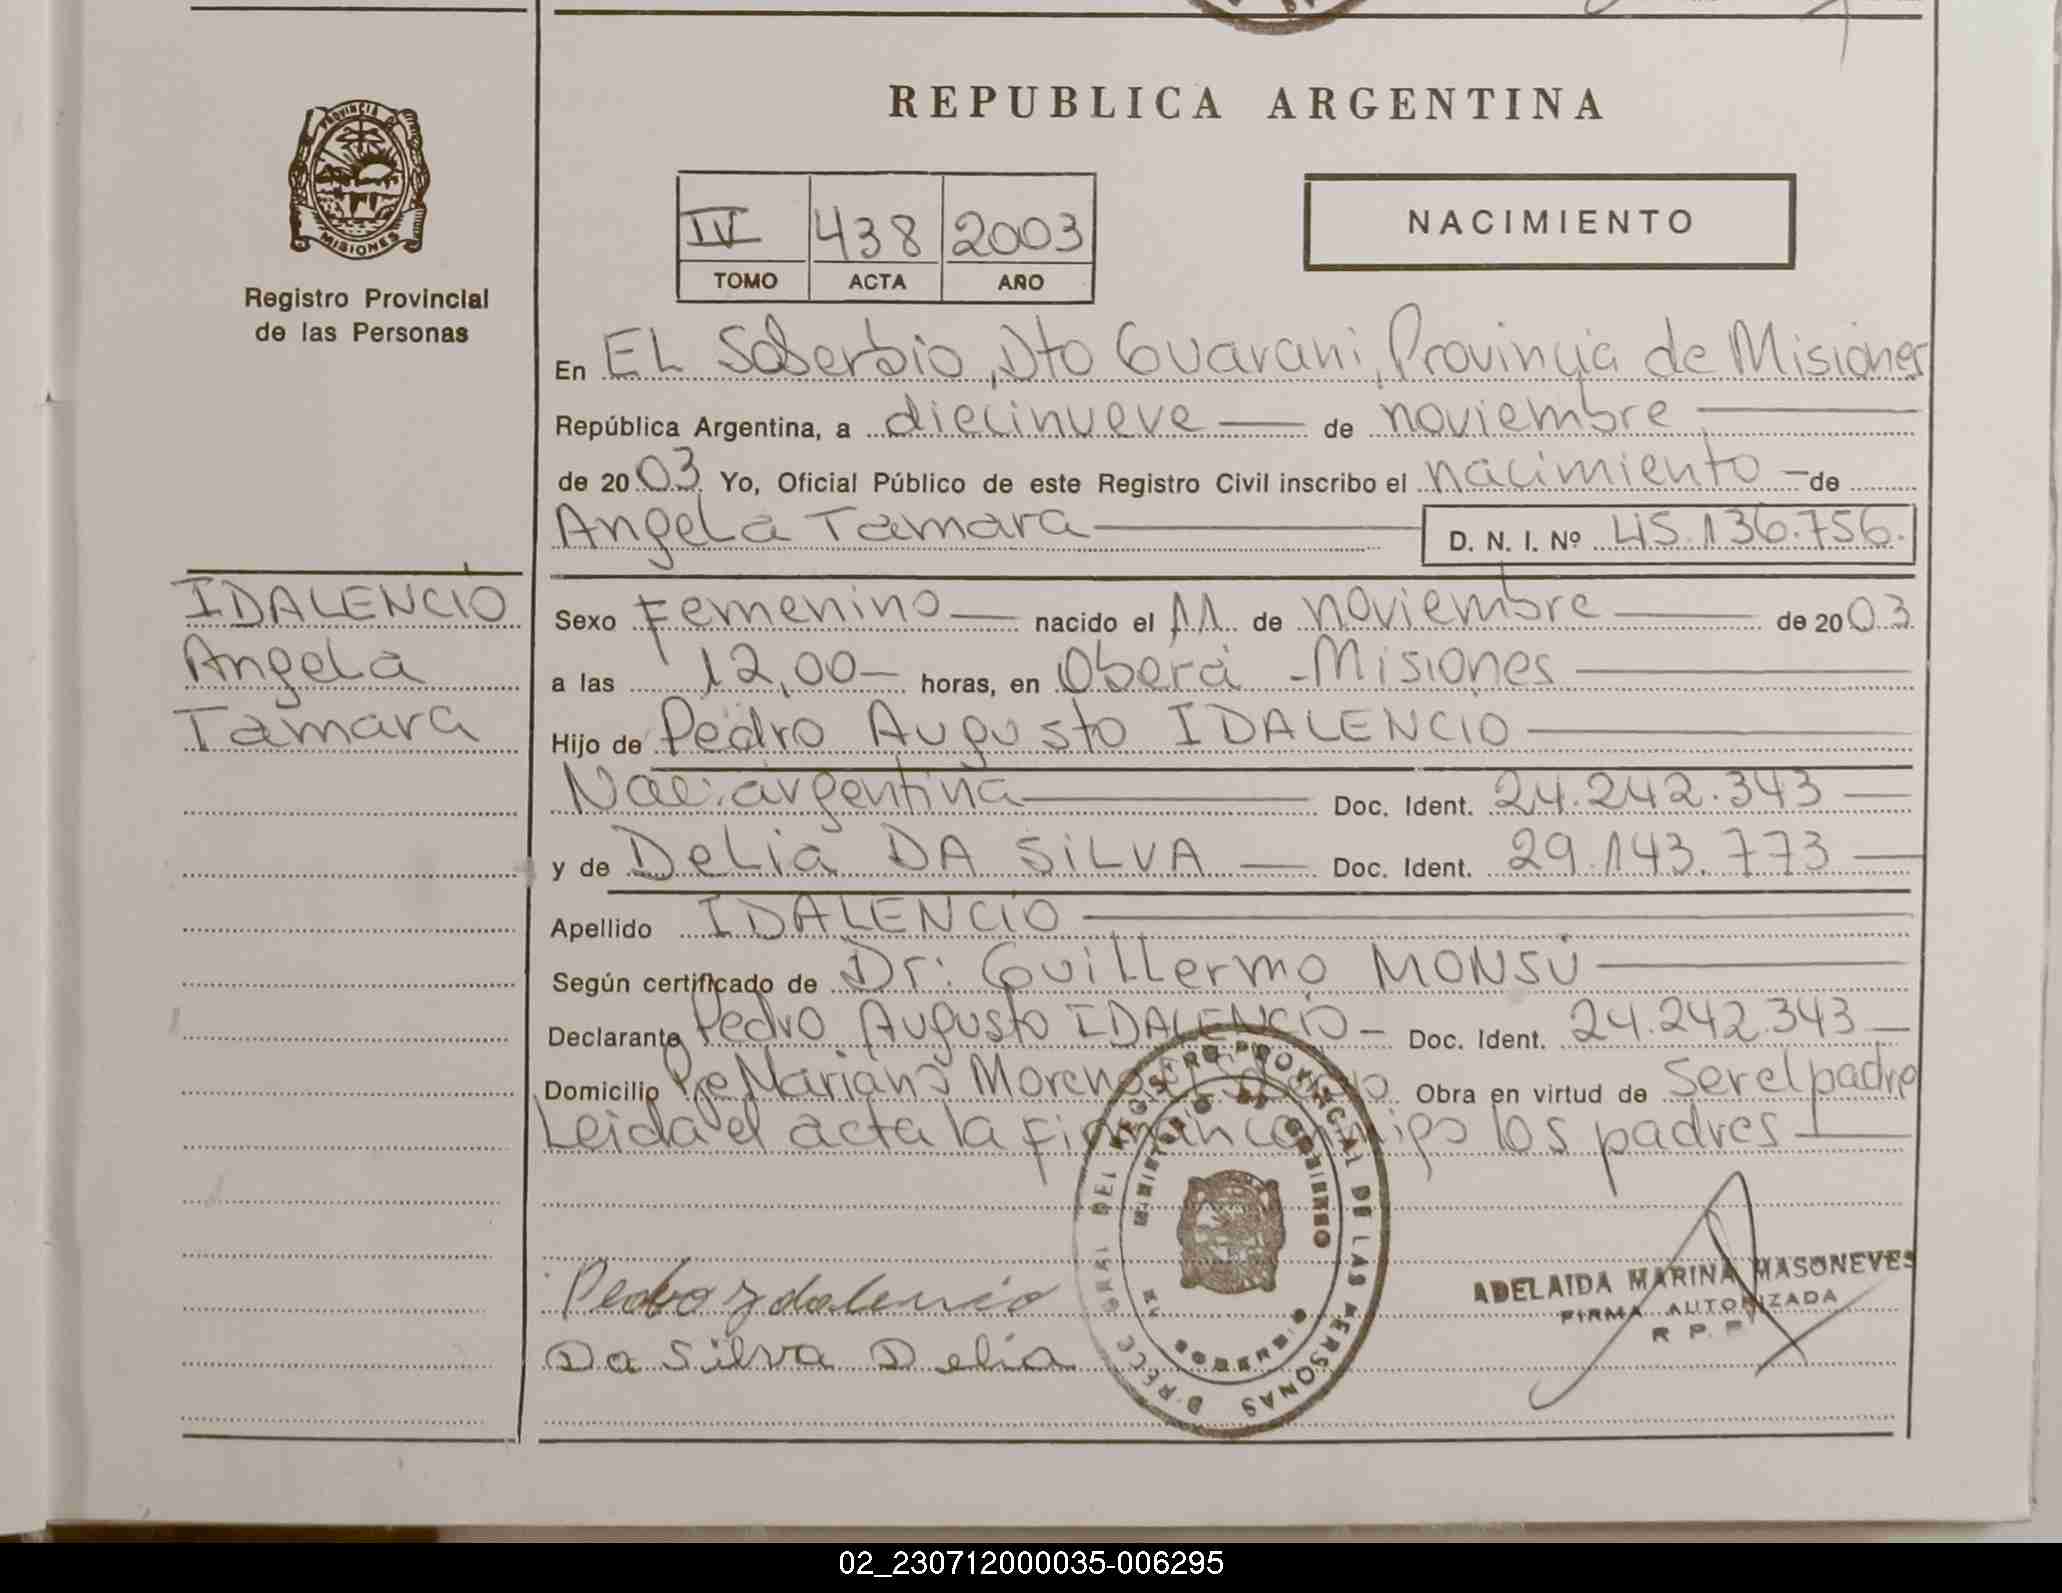 PROVINCIA DE
MISIONES
Registro Provincial
de las Personas
REPUBLICA ARGENTINA
IV 438 2003
TOMO ACTA AÑO
NACIMIENTO
En EL Soberbio, Dto Guarani, Provincia de Misiones
República Argentina, a diecinueve de noviembre
de 2003 Yo, Oficial Público de este Registro Civil inscribo el nacimiento de
Angela Tamara D. N. I. Nº 45.136.756.
IDALENCIO
Angela
Tamara
Sexo Femenino nacido el 11 de noviembre de 2003
a las 12,00 horas, en Oberá - Misiones
Hijo de Pedro Augusto IDALENCIO
Nac: argentina Doc. Ident. 24.242.343
y de Delia DA SILVA Doc. Ident. 29.143.773
Apellido IDALENCIO
Según certificado de Dr: Guillermo MONSÚ
Declarante Pedro Augusto IDALENCIO Doc. Ident. 24.242.343
Domicilio Mariano Moreno Obra en virtud de ser el padre
Leida el acta la firman conmigo los padres
Pedro Idalencio
Da Silva Delia
REGISTRO PROVINCIAL DE LAS PERSONAS
MINISTERIO DE GOBIERNO
ADELAIDA MARINA MASONEVES
FIRMA AUTORIZADA
R. P. P.
02_230712000035-006295